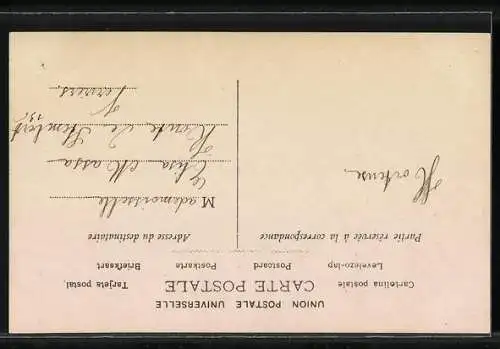 UNION POSTALE UNIVERSELLE
CARTE POSTALE
Cartolina postale Levelezo-lap Postcard Postkarte Briefkaart Tarjeta postal.
Partie réservée à la correspondance
Adresse du destinataire
Hortense
Mademoiselle
Elisa Massa
Route de Stembert
Verviers.